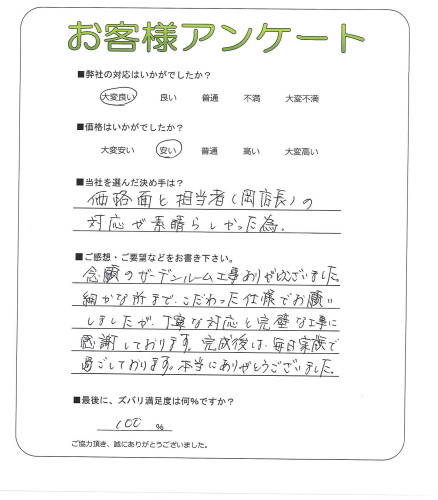 お客様アンケート
■弊社の対応はいかがでしたか？
大変良い 良い 普通 不満 大変不満
■価格はいかがでしたか？
大変安い 安い 普通 高い 大変高い
■当社を選んだ決め手は？
価格面と担当者（岡店長）の
対応が素晴らしかった為.
■ご感想・ご要望などをお書き下さい。
念願のガーデンルーム工事ありがとうございました。
細かな所まで、こだわった仕様でお願い
しましたが、丁寧な対応と完璧な工事に
感謝しております。完成後は、毎日家族で
過ごしております。本当にありがとうございました。
■最後に、ズバリ満足度は何％ですか？
100 ％
ご協力頂き、誠にありがとうございました。